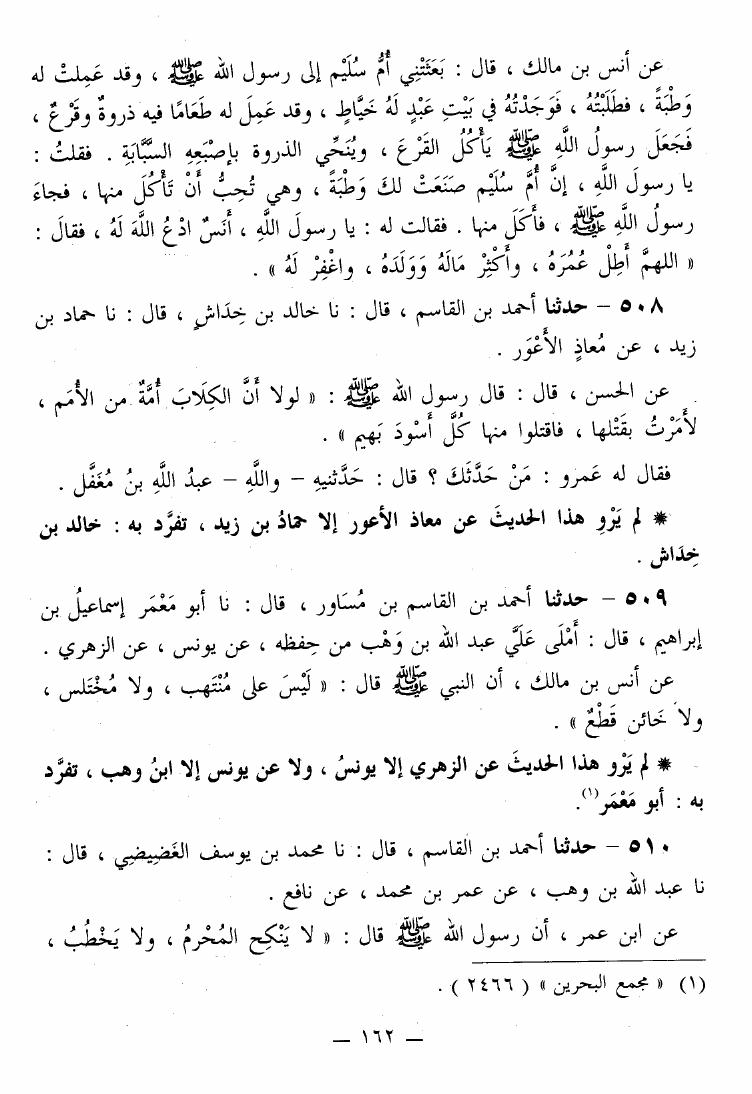 عن أنس بن مالك ، قال : بَعَثَتْنِي أُمُّ سُلَيْم إلى رسول الله ﷺ ، وقد عَمِلتْ له
وَطْبَةً ، فطَلَبْتُه ، فَوَجَدْتُهُ في بَيْتِ عَبْدٍ لَهُ خَيَّاطٍ ، وقد عَمِلَ له طَعَامًا فيه ذروةٌ وقَرْعٌ ،
فَجَعَلَ رسولُ اللَّهِ ﷺ يَأْكُلُ القَرْعَ ، ويُنَحِّي الذروة بإِصْبَعِهِ السَّبَّابَةِ . فقلتُ :
يا رسولَ اللَّهِ ، إنَّ أُمَّ سُلَيْم صَنَعَتْ لكَ وَطْبَةً ، وهي تُحِبُّ أَنْ تَأْكُلَ منها ، فجاءَ
رسولُ اللَّهِ ﷺ ، فأَكَلَ منها . فقالت له : يا رسولَ اللَّهِ ، أَنَسٌ ادْعُ اللَّهَ لَهُ ، فقالَ :
« اللهمَّ أَطِلْ عُمُرَهُ ، وأَكْثِرْ مَالَهُ وَوَلَدَهُ ، واغْفِرْ لَهُ » .
٥٠٨ – حدثنا أحمد بن القاسم ، قال : نا خالد بن خِدَاشٍ ، قال : نا حماد بن
زيد ، عن مُعاذٍ الأَعْوَر .
عن الحسن ، قال : قال رسول الله ﷺ : « لولا أَنَّ الكِلَابَ أُمَّةٌ من الأُمَم ،
لأَمَرْتُ بقَتْلها ، فاقتلوا منها كُلَّ أَسْودَ بَهيم » .
فقال له عَمرو : مَنْ حَدَّثَكَ ؟ قال : حَدَّثنيهِ – واللَّهِ – عبدُ اللَّهِ بنُ مُغَفَّل .
* لم يَرْوِ هذا الحديثَ عن معاذ الأعور إلا حمادُ بن زيد ، تفرَّد به : خالد بن
خِدَاش .
٥٠٩ – حدثنا أحمد بن القاسم بن مُسَاور ، قال : نا أبو مَعْمَر إسماعيلُ بن
إبراهيم ، قال : أَمْلَى عَلَيَّ عبد الله بن وَهْب من حِفظه ، عن يونس ، عن الزهري .
عن أنس بن مالك ، أن النبي ﷺ قال : « لَيْسَ على مُنْتَهب ، ولا مُخْتَلس ،
ولا خَائن قَطْعٌ » .
* لم يَرْو هذا الحديثَ عن الزهري إلا يونسُ ، ولا عن يونس إلا ابنُ وهب ، تفرَّد
به : أبو مَعْمَر(١).
٥١٠ – حدثنا أحمد بن القاسم ، قال : نا محمد بن يوسف الغَضِيضِي ، قال :
نا عبد الله بن وهب ، عن عمر بن محمد ، عن نافع .
عن ابن عمر ، أن رسول الله ﷺ قال : « لا يَنْكِح المُحْرمُ ، ولا يَخْطُبُ ،
(١) « مجمع البحرين » ( ٢٤٦٦ ) .
– ١٦٢ –